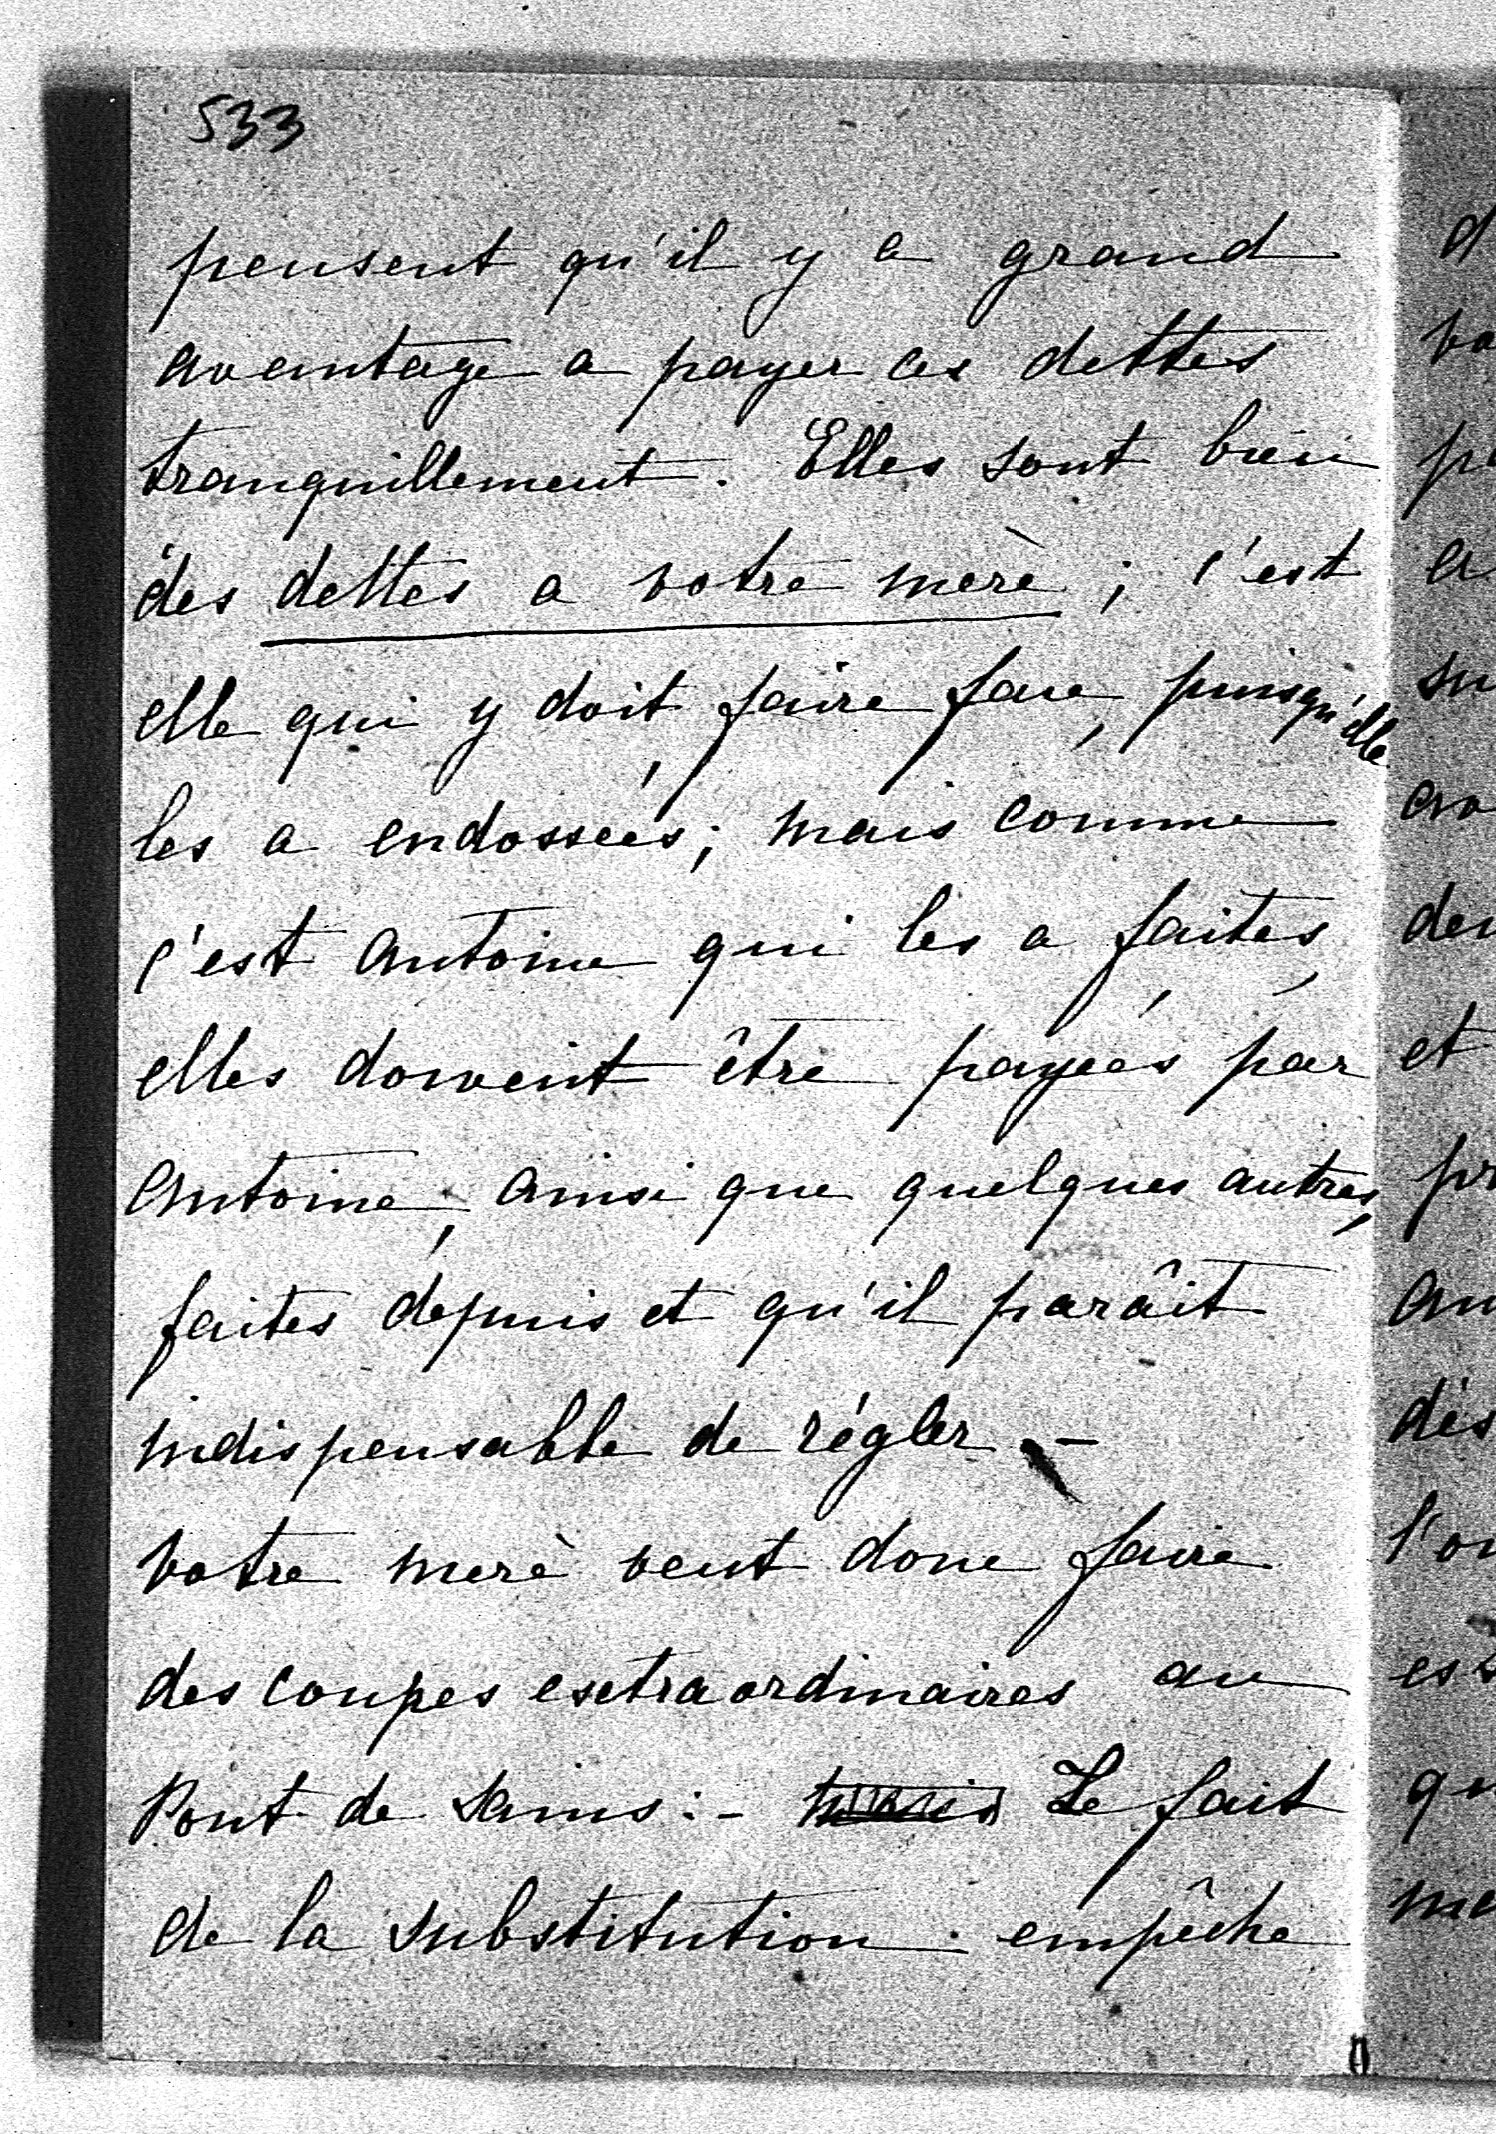 533
pensent qu'il y a grand
avantage a payer ces dettes
tranquillement. Elles sont bien
des dettes a votre mère ; c'est
elle qui y doit faire face, puisqu'elle
les a endossées ; mais comme
c'est Antoine qui les a faites,
elles doivent être payées par
Antoine, ainsi que quelques autres,
faites depuis et qu'il paraît
indispensable de régler. -
Votre mère veut donc faire
des coupes extraordinaires au
Pont de Sains : - mais Le fait
de la substitution empêche